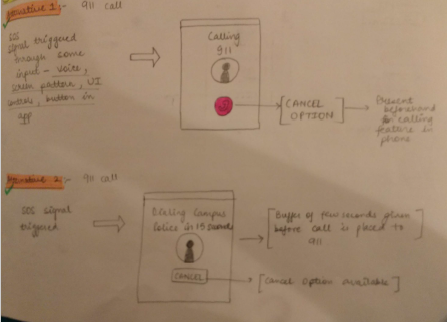 Iterative 1:- 911 call
SOS
signal triggered
through some
input - voice,
screen pattern, UI
control, button in
app
Calling
911
[CANCEL
OPTION]
Present
beforehand
in calling
feature in
phone
Iterative 2:- 911 call
SOS signal
triggered
Dialling Campus
Police in 15 seconds
CANCEL
[Buffer of few seconds given
before call is placed to
911
[Cancel option available]